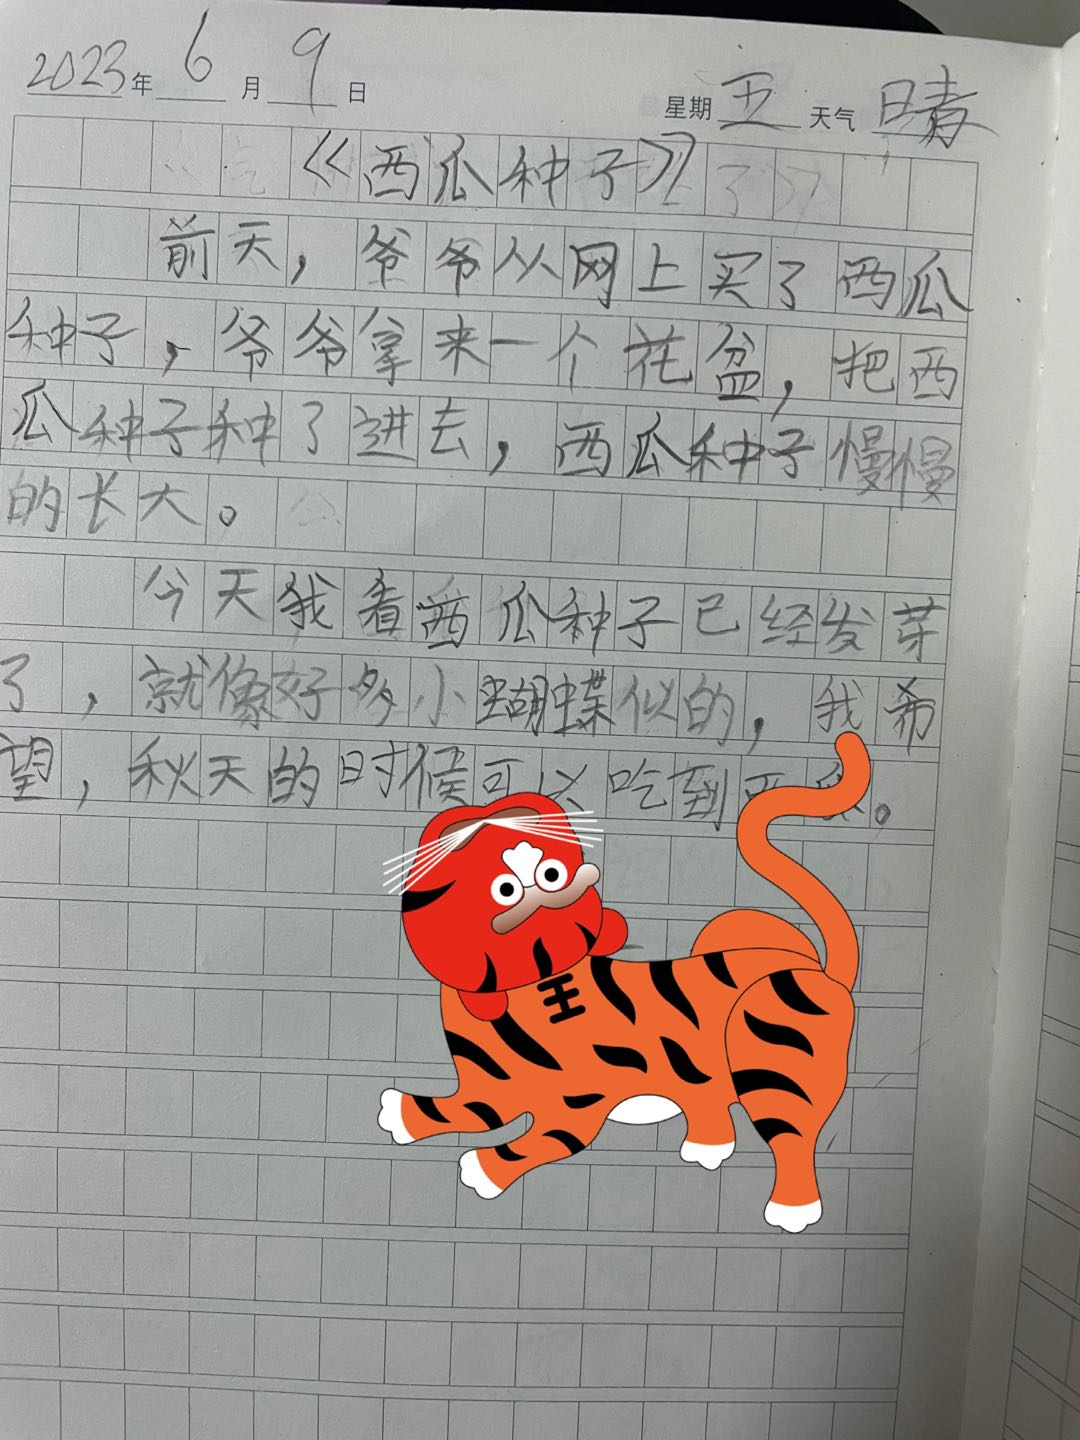 2023年 6 月 9 日 星期 五 天气 晴
《西瓜种子》
前天，爷爷从网上买了西瓜
种子，爷爷拿来一个花盆，把西
瓜种子种了进去，西瓜种子慢慢
的长大。
今天我看西瓜种子已经发芽
了，就像好多小蝴蝶似的，我希
望，秋天的时候可以吃到西瓜。
王